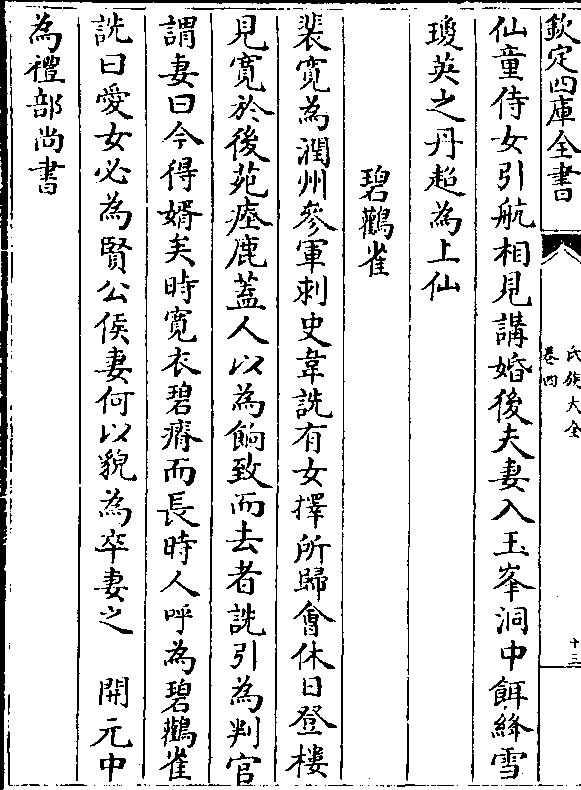 欽定四庫全書
氏族大全
卷四
十三
仙童侍女引航相見講婚後夫妻入玉峯洞中餌絳雪
瓊英之丹超為上仙
碧鸛雀
裴寛為潤州參軍刺史韋詵有女擇所歸㑹休日登樓
見寛於後苑瘞鹿蓋人以為餉致而去者詵引為判官
謂妻曰今得婿矣時寛衣碧瘠而長時人呼為碧鸛雀
詵曰愛女必為賢公侯妻何以貌為卒妻之 開元中
為禮部尚書